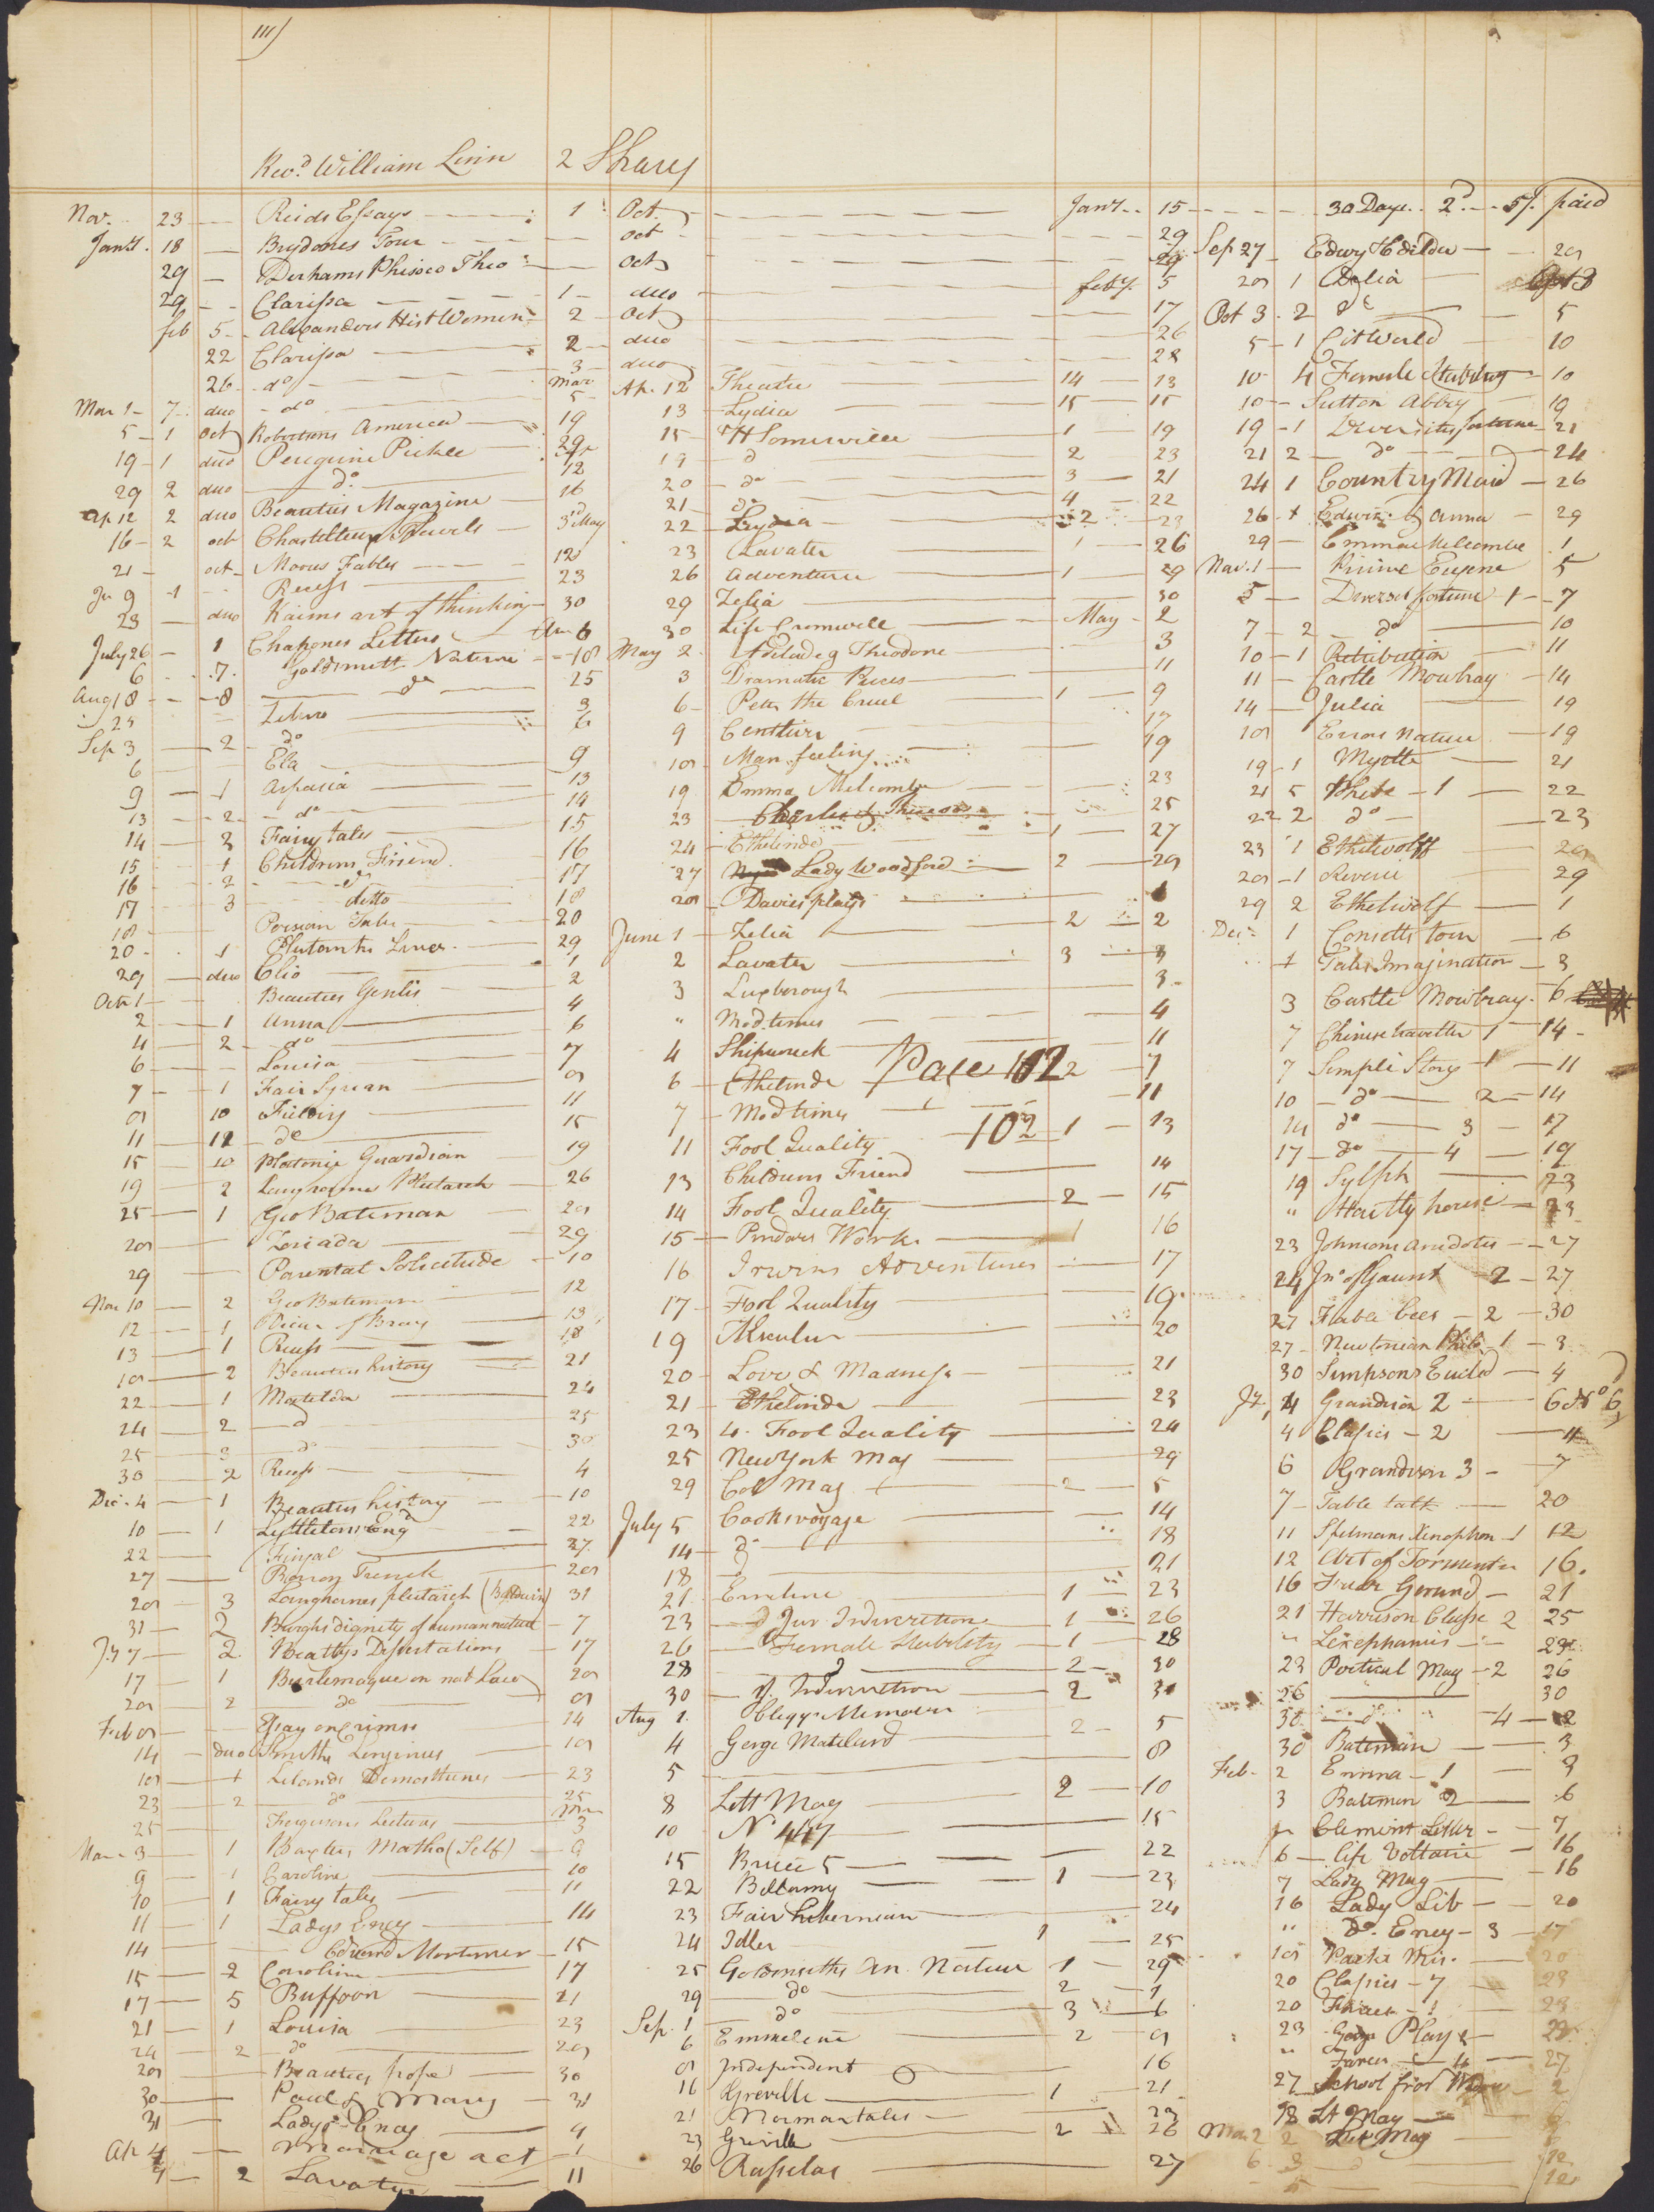 111)
Revd. William Linn 2 Shares
Nov. 23 Reids Essays 1 Oct. Jany. 15
Jany. 18 Brydones Tour Oct 29
29 Derhams Phisico Theo oct 29
29 Clarissa 1 duo feby. 5
feb 5 Alexanders Hist Women 2 Oct 17
22 Clarissa 2 duo 26
26 do 3 duo 28
Mar 1 7 duo do Mar 5
5 1 Oct Robertsons America 19
19 1 duo Peregrine Pickle 29
29 2 duo do. 12
Ap 12 2 duo Beauties Magazine 16
16 2 oct Chastelleux Travels 3d May
21 oct Moores Fables 12
Ju 9 1 Recess 23
23 duo Kaims art of thinking 30
July 26 1 Chapones Letters 6
6 7 Goldsmith Nature 18
Aug 18 8 do 25
25 Zeluco 3
Sep 3 2 do 6
6 Ela 9
9 1 Aspasia 13
13 2 do 14
14 2 Fairy tales 15
15 1 Childrens Friend 16
16 2 do 17
17 3 ditto 18
18 Persian Tales 20
20 1 Plutarchs Lives 29
29 duo Clio 1
Octr 1 Beauties Genlis 2
2 1 Anna 4
4 2 do 6
6 Louisa 7
7 1 Fair Syrian 8
8 10 Fielding 11
11 12 do 15
15 10 Platonic Guardian 19
19 2 Langhornes Plutarch 26
25 1 Geo Bateman 28
28 Zoriada 29
29 Parental Solicitude 10
Nov 10 2 Geo Bateman 12
12 1 Vicar of Bray 13
13 1 Recess 18
18 2 Beauties history 21
22 1 Matilda 24
24 2 d 25
25 3 do 30
30 2 Recess 4
Dec. 4 1 Beauties history 10
10 1 Lyttletons Engd 22
22 Fingal 27
27 Baron Trenck 28
28 3 Langhornes plutarch (Baldwin) 31
31 2 Burghs dignity of human nature 7
Jy 7 2 Beattys Dissertations 17
17 1 Burlemaque on nat Law 28
28 2 do 8
Feb 8 Essay on Crimes 14
14 duo Smiths Longinus 18
18 1 Lelands Demosthenes 23
23 2 do 25
25 Fergusons Lectures 3
Mar. 3 1 Baxters Matho (Self) 9
9 1 Caroline 10
10 1 Fairy tales 11
11 1 Ladys Ency 14
14 Edward Mortimer 15
15 2 Caroline 17
17 5 Buffoon 21
21 1 Louisa 23
24 2 do 28
28 Beauties pope 30
30 Paul & Mary 31
31 Ladys Ency 4
Ap 4 Marriage act
2 Lavater 11
Ap. 12 Theatre 14 13
13 Lydia 15 15
15 H Somerville 1 19
19 d 2 23
20 do 3 21
21 do 4 22
22 Lydia 2 23
23 Lavater 1 26
26 Adventurer 1 29
29 Zelia 30
30 Life Cromwell May 2
May 2 Adelade & Theodore 3
3 Dramatic Pieces 11
6 Peter the Cruel 1 9
9 Centlivre 17
18 Man feeling 19
19 Emma Melcombe 23
23 Charles & 25
24 Ethelinde 1 27
27 Lady Woodford 2 28
28 Davies plays 1
June 1 Zelia 2 2
2 Lavater 3 3
3 Luxborough 3
" Mod. times 4
4 Shipwreck 11
6 Ethelinde 2 7
Page 102
7 Mod times 11
102
11 Fool Quality 1 13
13 Childrens Friend 14
14 Fool Quality 2 15
15 Pindars Works 1 16
16 Irwins Adventures 17
17 Fool Quality 19
19 20
20 Love & Madness 21
21 Ethelinda 23
23 4. Fool Quality 24
25 New York Mag 29
29 Col Mag 2 5
July 5 Cooks voyage 14
14 do 18
18 d 21
21 Emeline 1 23
23 d Juv. Indiscretions 1 26
26 Female Stability 1 28
28 d 2 30
30 J. Indiscretion 2 31
Aug 1 Cleggs Memoirs
4 George Mateland 2 5
5 8
8 Lett Mag 2 10
10 No 447 15
15 Bruce 5 22
22 Bellamy 1 23
23 Fair hibernian 24
24 Idler 1 25
25 Goldsmiths An. Nature 1 29
29 do 2 1
Sep. 1 do 3 6
6 Emmeline 2 8
8 Independent 16
16 Greville 1 21
21 Norman tales 23
23 Greville 2 26
26 Rasselas 27
30 Days 2d. 5/. paid
Sep 27 Edwy & Edilda 28
28 1 Delia
Oct 3 2 do 5
5 1 Cit World 10
10 4 Female Stability 10
10 Sutton Abbey 19
19 1 Diversities fortune 21
21 2 do 24
24 1 Country Maid 26
26 1 Edwin & Anna 29
29 Emma Melcombe 1
Nov. 1 Prince Eugene 5
5 Diverses fortune 1 7
7 2 do 10
10 1 Retribution 11
11 Castle Mowbray 14
14 Julia 19
18 Errors Nature 19
19 1 Myrtle 21
21 5 1 22
22 2 do 23
23 1 Ethelwolff 28
28 1 Reverie 29
29 2 Ethelwolf 1
Dec. 1 Consetts tour 6
1 Tales Imagination 3
3 Castle Mowbray 6
7 Chinese traveller 1 14
7 Simple Story 1 11
10 do 2 14
14 do 3 17
17 do 4 19
19 Sylph 23
" Hartly house 23
23 Johnsons anecdotes 27
24 Jno of Gaunt 2 27
27 Fable bees 2 30
27 Newtonian Philo. 1 3
30 Simpsons Euclid 4
Jy, 4 Grandison 2 6 No 6
4 Classics 2 11
6 Grandison 3 7
7 Table talk 20
11 Spelmans Xenophon 1 12
12 Art of Tormentn 16.
16 Friar Gerund 21
21 Harrison Classc 2 25
" Lexephanes 23
23 Poetical Mag 2 26
26 30
30 d 4 2
30 Bateman 3
Feb. 2 Emma 1 3
3 Bateman 2 6
Clement Letter 7
6 life Voltaire 16
7 Lady Mag 16
16 Lady Lib 20
" Do. Ency 3 17
18 Mis. 20
20 Classics 7 23
20 1 23
23 Plays 23
" Farces 27
27 School for 2
28 Lt Mag
Mar 2 2 Mag